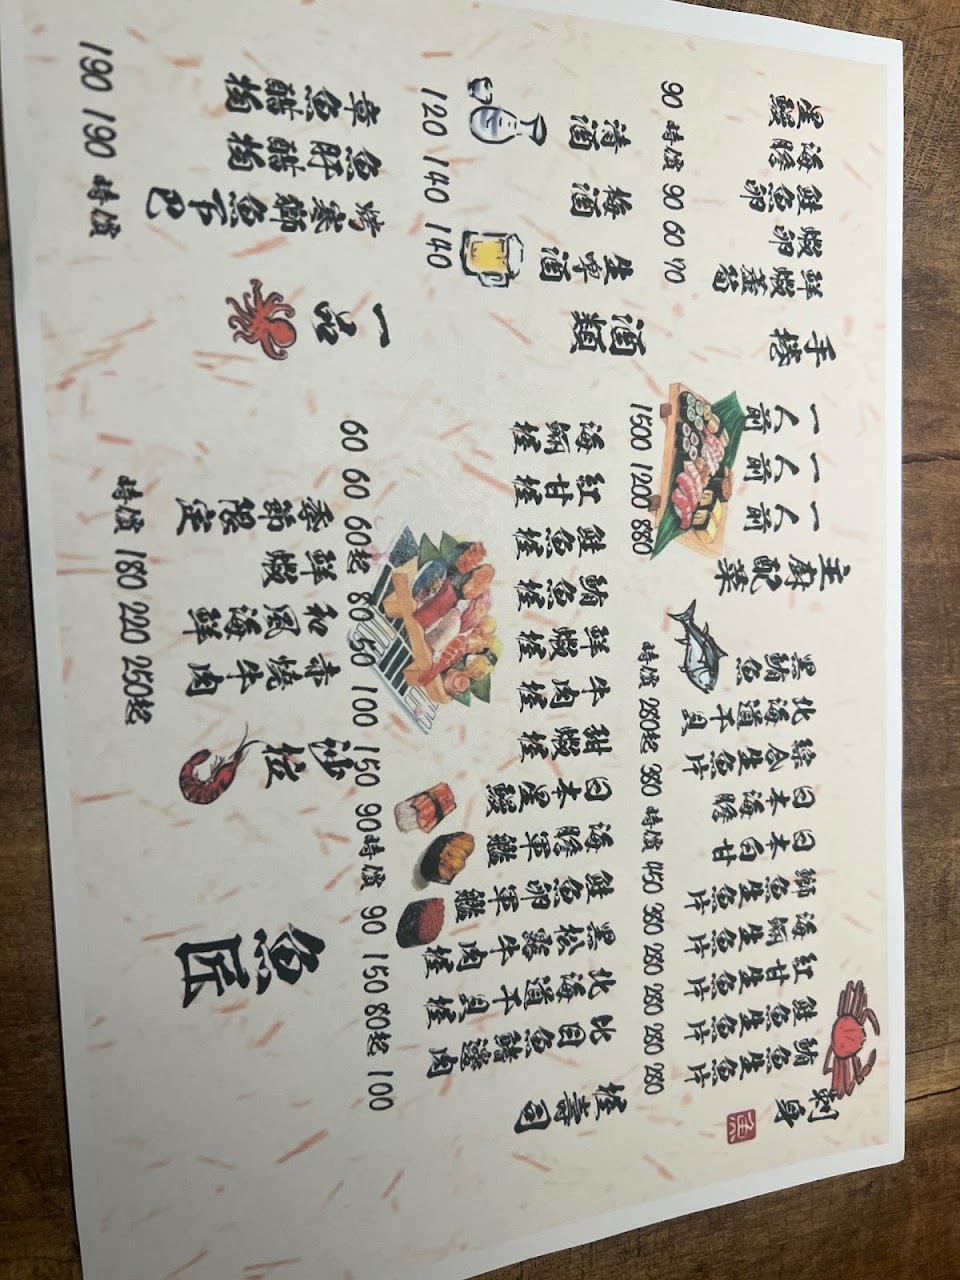 刺身
鮪魚生魚片 280
鮭魚生魚片 280
紅甘生魚片 280
海鱺生魚片 280
鰤魚生魚片 380
日本白甘 450
日本海膽 時價
綜合生魚片 380
北海道干貝 280起
黑鮪魚 時價
主廚配菜
一人前 880
一人前 1200
一人前 1500
手捲
鮮蝦蘆筍 70
蝦卵 60
鮭魚卵 90
海膽 時價
星鰻 90
握壽司
比目魚鰭邊肉 100
北海道干貝握 80起
黑松露牛肉握 150
鮭魚卵軍艦 90
海膽軍艦 時價
日本星鰻 90
甜蝦握 150
牛肉握 100
鮮蝦握 50
鮪魚握 80
鮭魚握 60起
紅甘握 60
海鱺握 60
酒類
生啤酒 140
梅酒 140
清酒 120
魚匠
沙拉
炙燒牛肉 250起
和風海鮮 220
鮮蝦 180
季節限定 時價
一品
烤寒鰤魚下巴 時價
魚肝醋物 190
章魚醋物 190